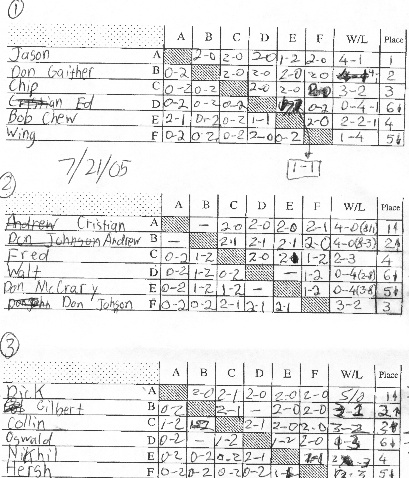 ①
A B C D E F W/L Place
Jason A 2-0 2-0 2-0 1-2 2-0 4-1 1
Don Gaither B 0-2 2-0 2-0 2-0 2-0 2
Chip C 0-2 0-2 2-0 2-0 3-2 3
Ed D 0-2 0-2 0-2 0-2 0-4-1 6↓
Bob Chew E 2-1 0-2 0-2 1-1 2-0 2-2-1 4
Wing F 0-2 0-2 0-2 2-0 0-2 1-4 5↓
7/21/05 1-1
②
A B C D E F W/L Place
Andrew Cristian A — 2-0 2-0 2-0 2-1 4-0 1↑
Don Johnson Andrew B — 2-1 2-1 2-1 2-0 4-0(8-3) 2↑
Fred C 0-2 1-2 2-0 1-2 2-3 4
Walt D 0-2 1-2 0-2 — 1-2 0-4(2-8) 6↓
Don McCrary E 0-2 1-2 1-2 — 1-2 0-4(3-8) 5↓
Don Johson F 0-2 2-1 2-1 2-1 3-2 3
③
A B C D E F W/L Place
Dick A 2-0 2-1 2-0 2-0 2-0 5/0 1↑
Gilbert B 0-2 2-1 — 2-0 2-0
Collin C 1-2 2-1 2-0 2-0
Oswald D 0-2 — 1-2 1-2 2-0 6↓
Nikhil E 0-2 0-2 0-2 2-1 4
Hersh F 0-2 0-2 0-2 0-2 5↓